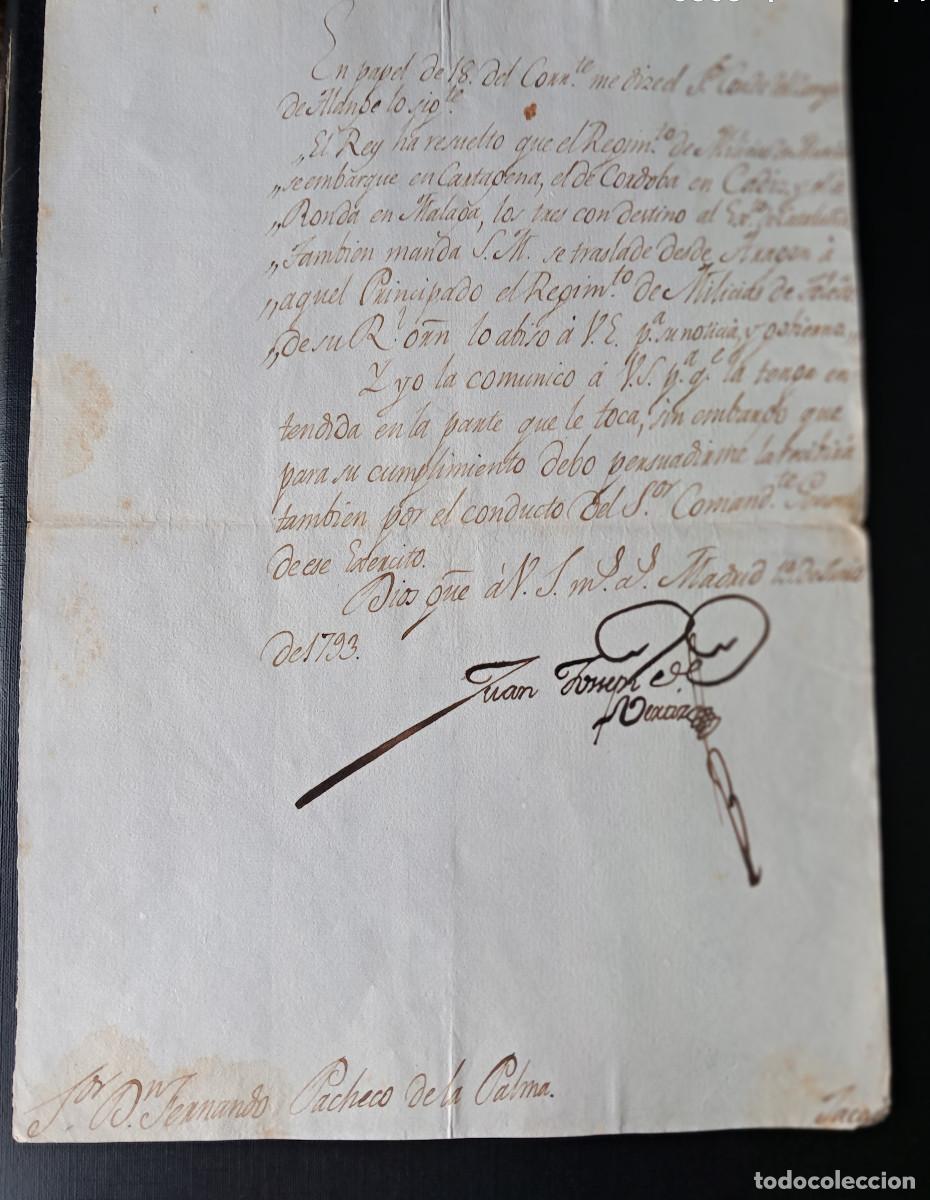 En papel de 18. del Corr.te me dize el S.r Conde del Campo
de Alange lo sig.te
„El Rey ha resuelto que el Regim.to de Milicias de
„se embarque en Cartagena, el de Cordoba en Cadiz, y el de
„Ronda en Malaga, los tres con destino al Ex.to de Cataluña
„Tambien manda S. M. se traslade desde Aragon à
„aquel Principado el Regim.to de Milicias de Toledo
„de su R.l orñ lo abiso à V. E. p.a su noticia, y gobierno„
Y yo la comunico á V. S. p.a q.e la tenga en
tendida en la parte que le toca, sin embargo que
para su cumplimiento debo persuadirme la recibirá
tambien por el conducto del S.or Comand.te
de ese Exército.
Dios gue à V. S. m.s a.s Madrid de
de 1793.
Juan Joseph de
S.or D.n Fernando Pacheco de la Palma.
Jaca
todocoleccion